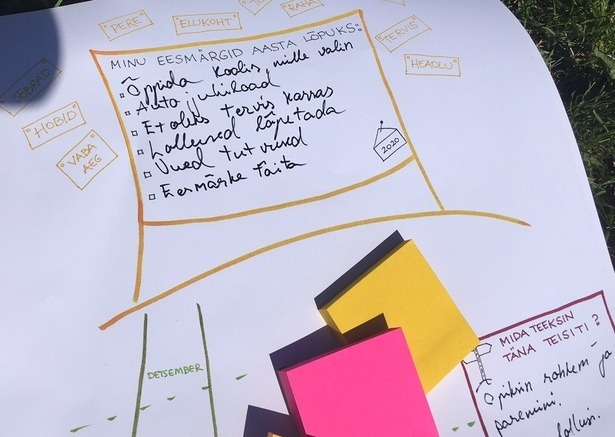 PERE
ELUKOHT
RAHA
TERVIS
HEADLU
SÕBRAD
HOBID
VABA
AEG
MINU EESMÄRGID AASTA LÕPUKS:
Õppida koolis, mille valin
Auto juhiload
Et oleks tervis korras
Lollused lõpetada
Uued tutvused
Eesmärke täita
2020
DETSEMBER
MIDA TEEKSIN
TÄNA TEISITI?
Õpiksin rohkem ja
paremini.
lollusi.